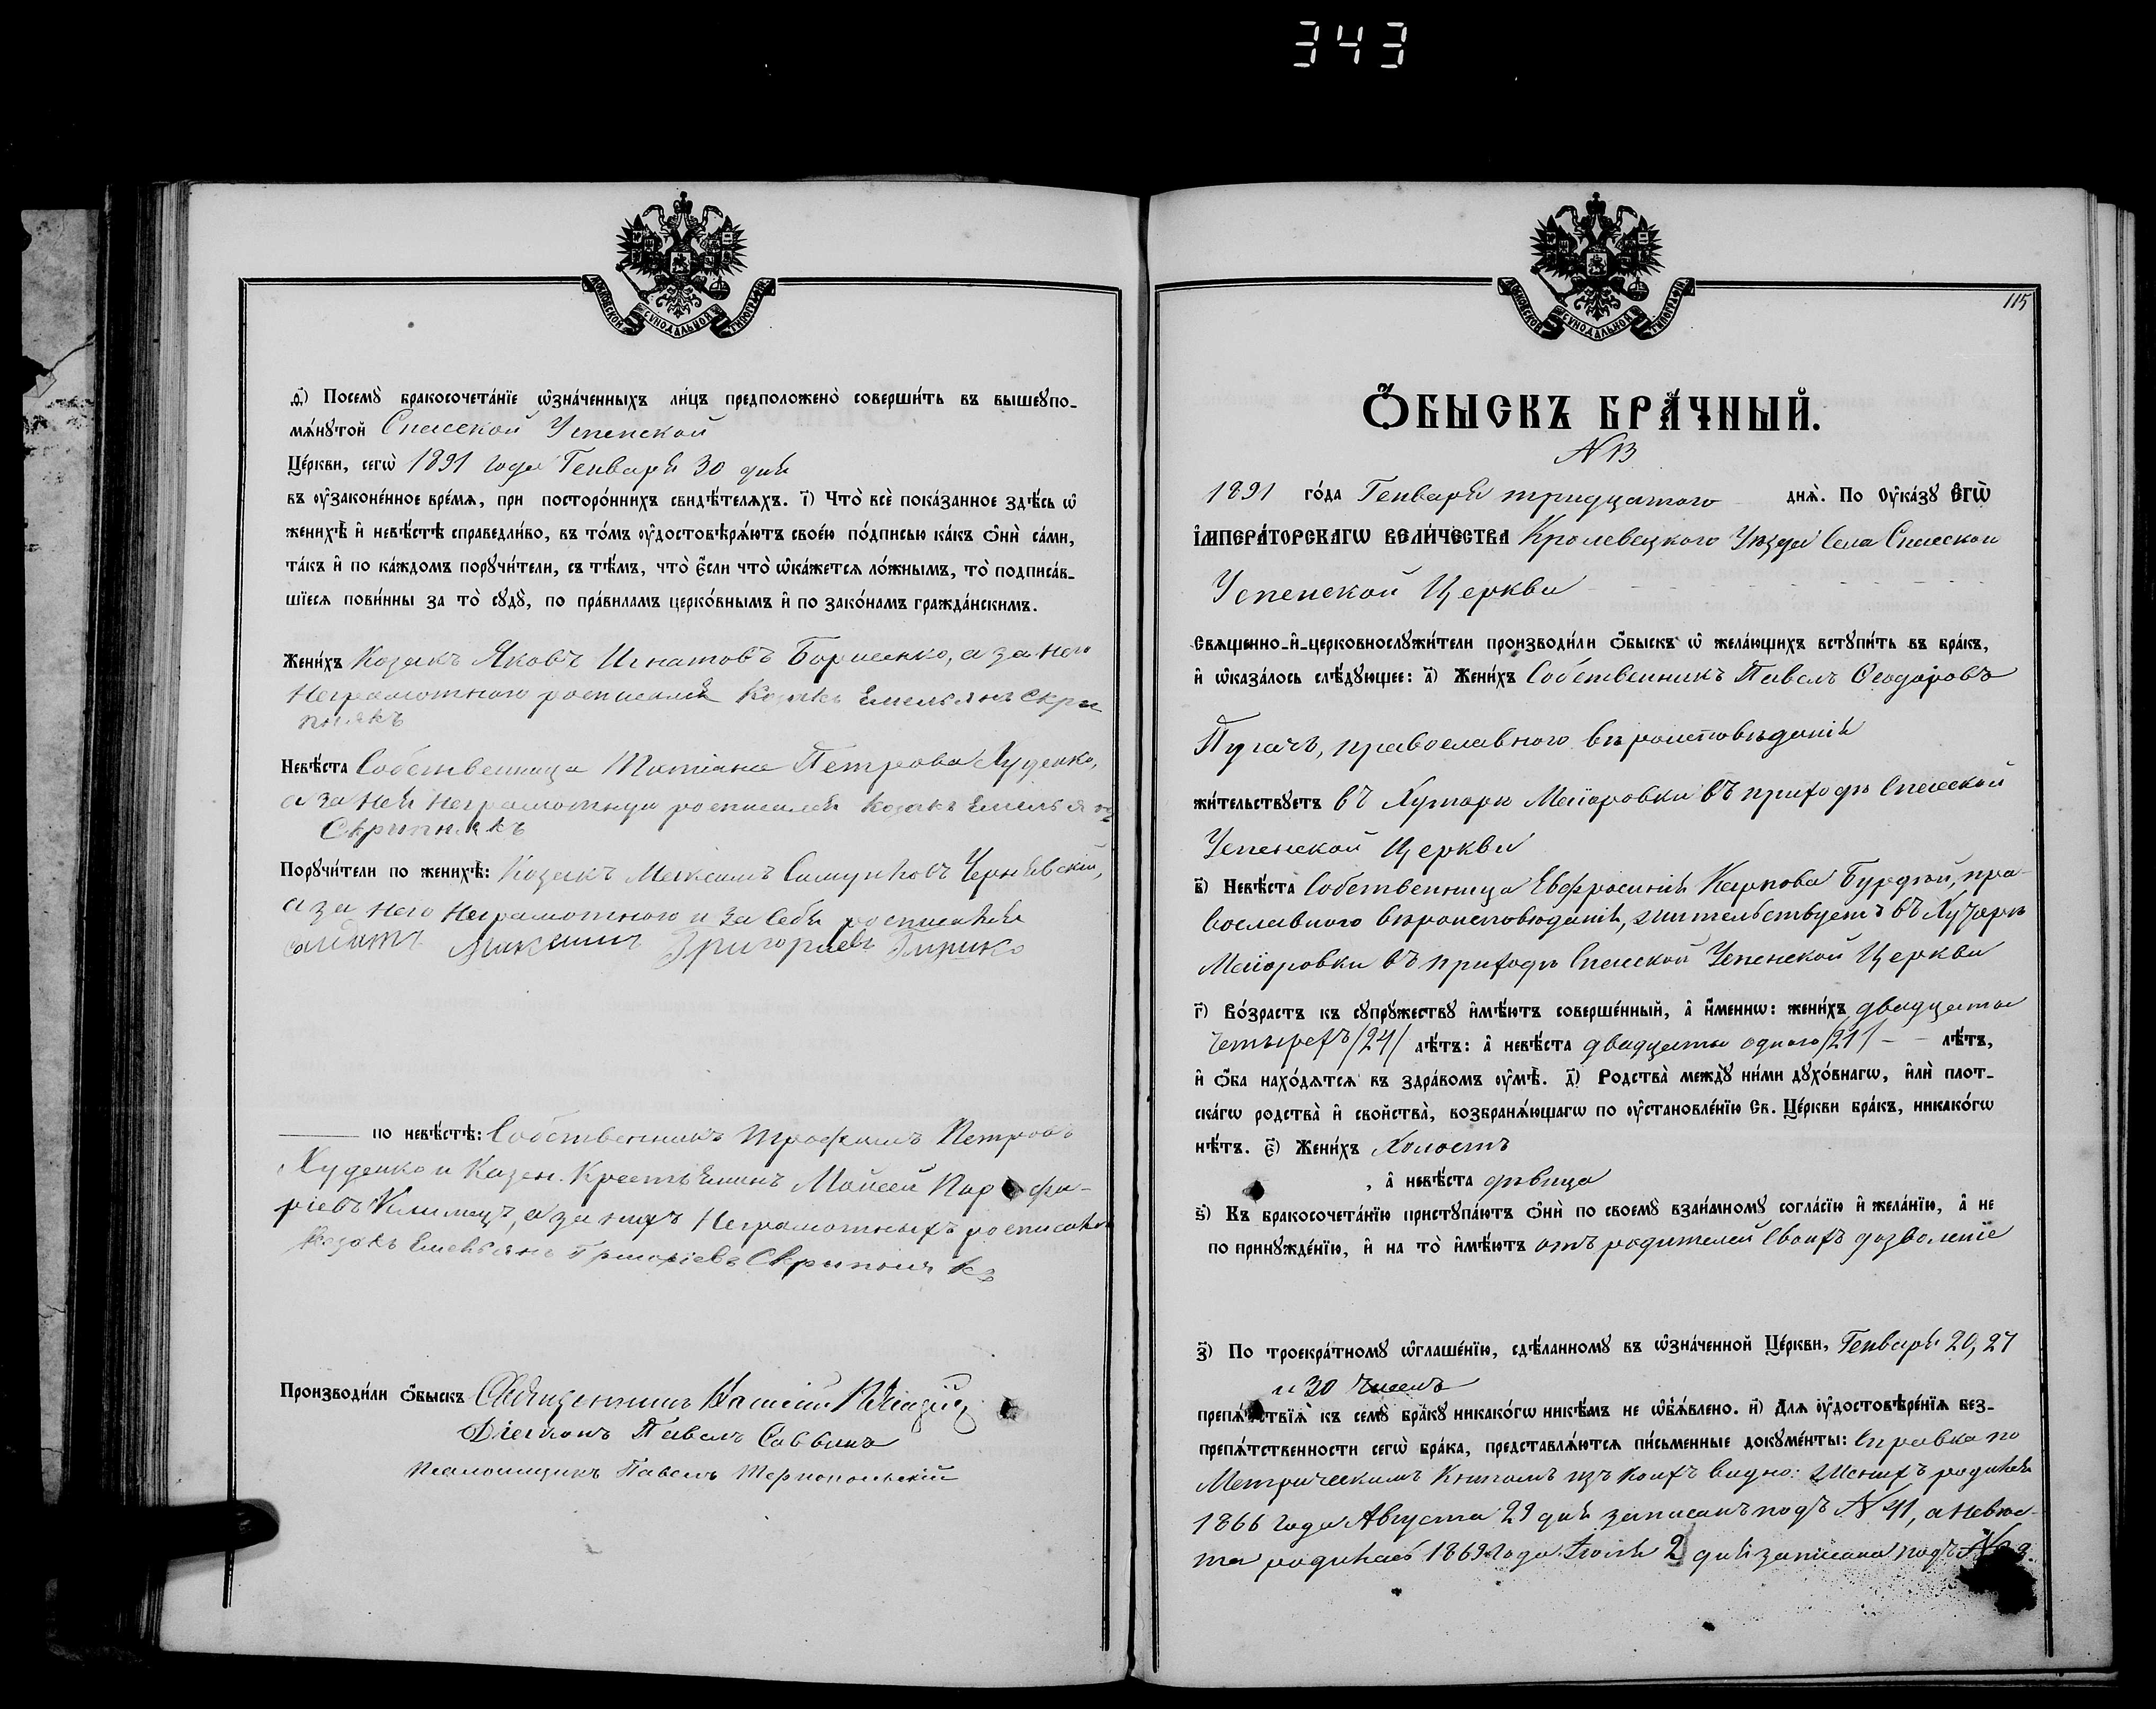 343
МОСКОВСКОЙ СѴНОДАЛЬНОЙ ТИПОГРАФІИ
ѳ҃) Посемꙋ̀ бракосочета́нїе ѡ҆зна́ченныхъ ли́цъ предположено̀ соверши́ть въ вышеꙋпо-
мѧ́нꙋтой Спасской Успенской
Це́ркви, сегѡ̀ 1891 года Генваря 30 дня
въ ᲂу҆законе́нное вре́мѧ, при посторо́ннихъ свидѣ́телѧхъ. і҃) Что̀ всѐ пока́занное здѣ́сь ѡ҆
женихѣ̀ и҆ невѣ́стѣ справедли́во, въ то́мъ ᲂу҆достовѣрѧ́ютъ свое́ю по́дписью ка́къ ѻ҆нѝ са́ми,
та́къ и҆ по ка́ждомъ порꙋчи́тели, съ тѣ́мъ, что̀ є҆́сли что̀ ѡ҆ка́жетсѧ ло́жнымъ, то̀ подписа́в-
шїесѧ пови́нны за то̀ сꙋдꙋ̀, по пра́виламъ церко́внымъ и҆ по зако́намъ гражда́нскимъ.
Жени́хъ Козакъ Яковъ Игнатовъ Борисенко, а за него
неграмотного росписался Козакъ Емельянъ Скри
пникъ
Невѣ́ста Собственница Татіана Петрова Худенко,
а за ней неграмотную росписался Козакъ Емельянъ
Скрипникъ
Порꙋчи́тели по женихѣ̀: Козакъ Максимъ Самуйловъ Чернявскій,
а за него неграмотного и за себя росписался
солдатъ Максимъ Григориевъ
по невѣ́стѣ: Собственникъ Трофимъ Петровъ
Худенко и Казен. Крестьянинъ Мойсей Порфи-
ріевъ Климецъ, а за нихъ неграмотныхъ росписался
Козакъ Емельянъ Григоріевъ Скрипникъ
Производи́ли ѻ҆́быскъ Священникъ
Діаконъ Павелъ Саввинъ
Псаломщикъ Павелъ Тернопольскій
МОСКОВСКОЙ СѴНОДАЛЬНОЙ ТИПОГРАФІИ
115
Ѻ҆́БЫСКЪ БРА́ЧНЫЙ.
N 13
1891 го́да Генваря тридцатого днѧ̀. По Оу҆ка́зꙋ Є҆ГѠ̀
І҆МПЕРА́ТОРСКАГѠ ВЕЛИ́ЧЕСТВА Кролевецкого Уѣзда Села Спасской
Успенской Церкви
Свѧщенно-и҆-церковнослꙋжи́тели производи́ли ѻ҆́быскъ ѡ҆ жела́ющихъ встꙋпи́ть въ бра́къ,
и҆ ѡ҆каза́лось слѣ́дꙋющее: а҃) Жени́хъ Собственникъ Павелъ Ѳеодоровъ
Пугачъ, православного вѣроисповѣданія
жи́тельствꙋетъ въ Хуторѣ Маіоровки въ приходѣ Спасской
Успенской Церкви
в҃) Невѣ́ста Собственница Евфросинія Карпова Бурдюй, пра-
вославного вѣроисповѣданія, жительствуетъ въ Хуторѣ
Маіоровки въ приходѣ Спасской Успенской Церкви
г҃) Во́зрастъ къ сꙋпрꙋ́жествꙋ и҆мѣ́ютъ соверше́нный, а҆ и҆́меннѡ: жени́хъ двадцати
четырехъ /24/ лѣ́тъ: а҆ невѣ́ста двадцати одного /21/ - - лѣ́тъ,
и҆ ѻ҆́ба нахо́дѧтсѧ въ здра́вомъ ᲂу҆мѣ̀. д҃) Родства̀ междꙋ̀ ни́ми дꙋхо́внагѡ, и҆лѝ плот-
ска́гѡ родства̀ и҆ свойства̀, возбранѧ́ющагѡ по ᲂу҆становле́нїю Св. Це́ркви бра́къ, никако́гѡ
нѣ́тъ. є҃) Жени́хъ Холостъ
, а҆ невѣ́ста дѣвица
ѕ҃) Къ бракосочета́нїю пристꙋпа́ютъ ѻ҆нѝ по своемꙋ̀ взаи́мномꙋ согла́сїю и҆ жела́нїю, а҆ не
по принꙋжде́нїю, и҆ на то̀ и҆мѣ́ютъ отъ родителей своихъ дозволеніе
з҃) По троекра́тномꙋ ѡ҆глаше́нїю, сдѣ́ланномꙋ въ ѡ҆зна́ченной Це́ркви, Генваря 20, 27
и 30 чиселъ
препѧ́тствїѧ къ семꙋ̀ бра́кꙋ никако́гѡ никѣ́мъ не ѡ҆б̾ѧ́влено. и҃) Длѧ ᲂу҆достовѣре́нїѧ без-
препѧ́тственности сегѡ̀ бра́ка, представлѧ́ютсѧ пи́сьменные докꙋме́нты: Справка по
Метрическимъ Книгамъ изъ коихъ видно: Женихъ родился
1866 года Августа 29 дня записанъ подъ N 41, а невѣс-
та родилась 1869 года Іюля 2 дня записана подъ N